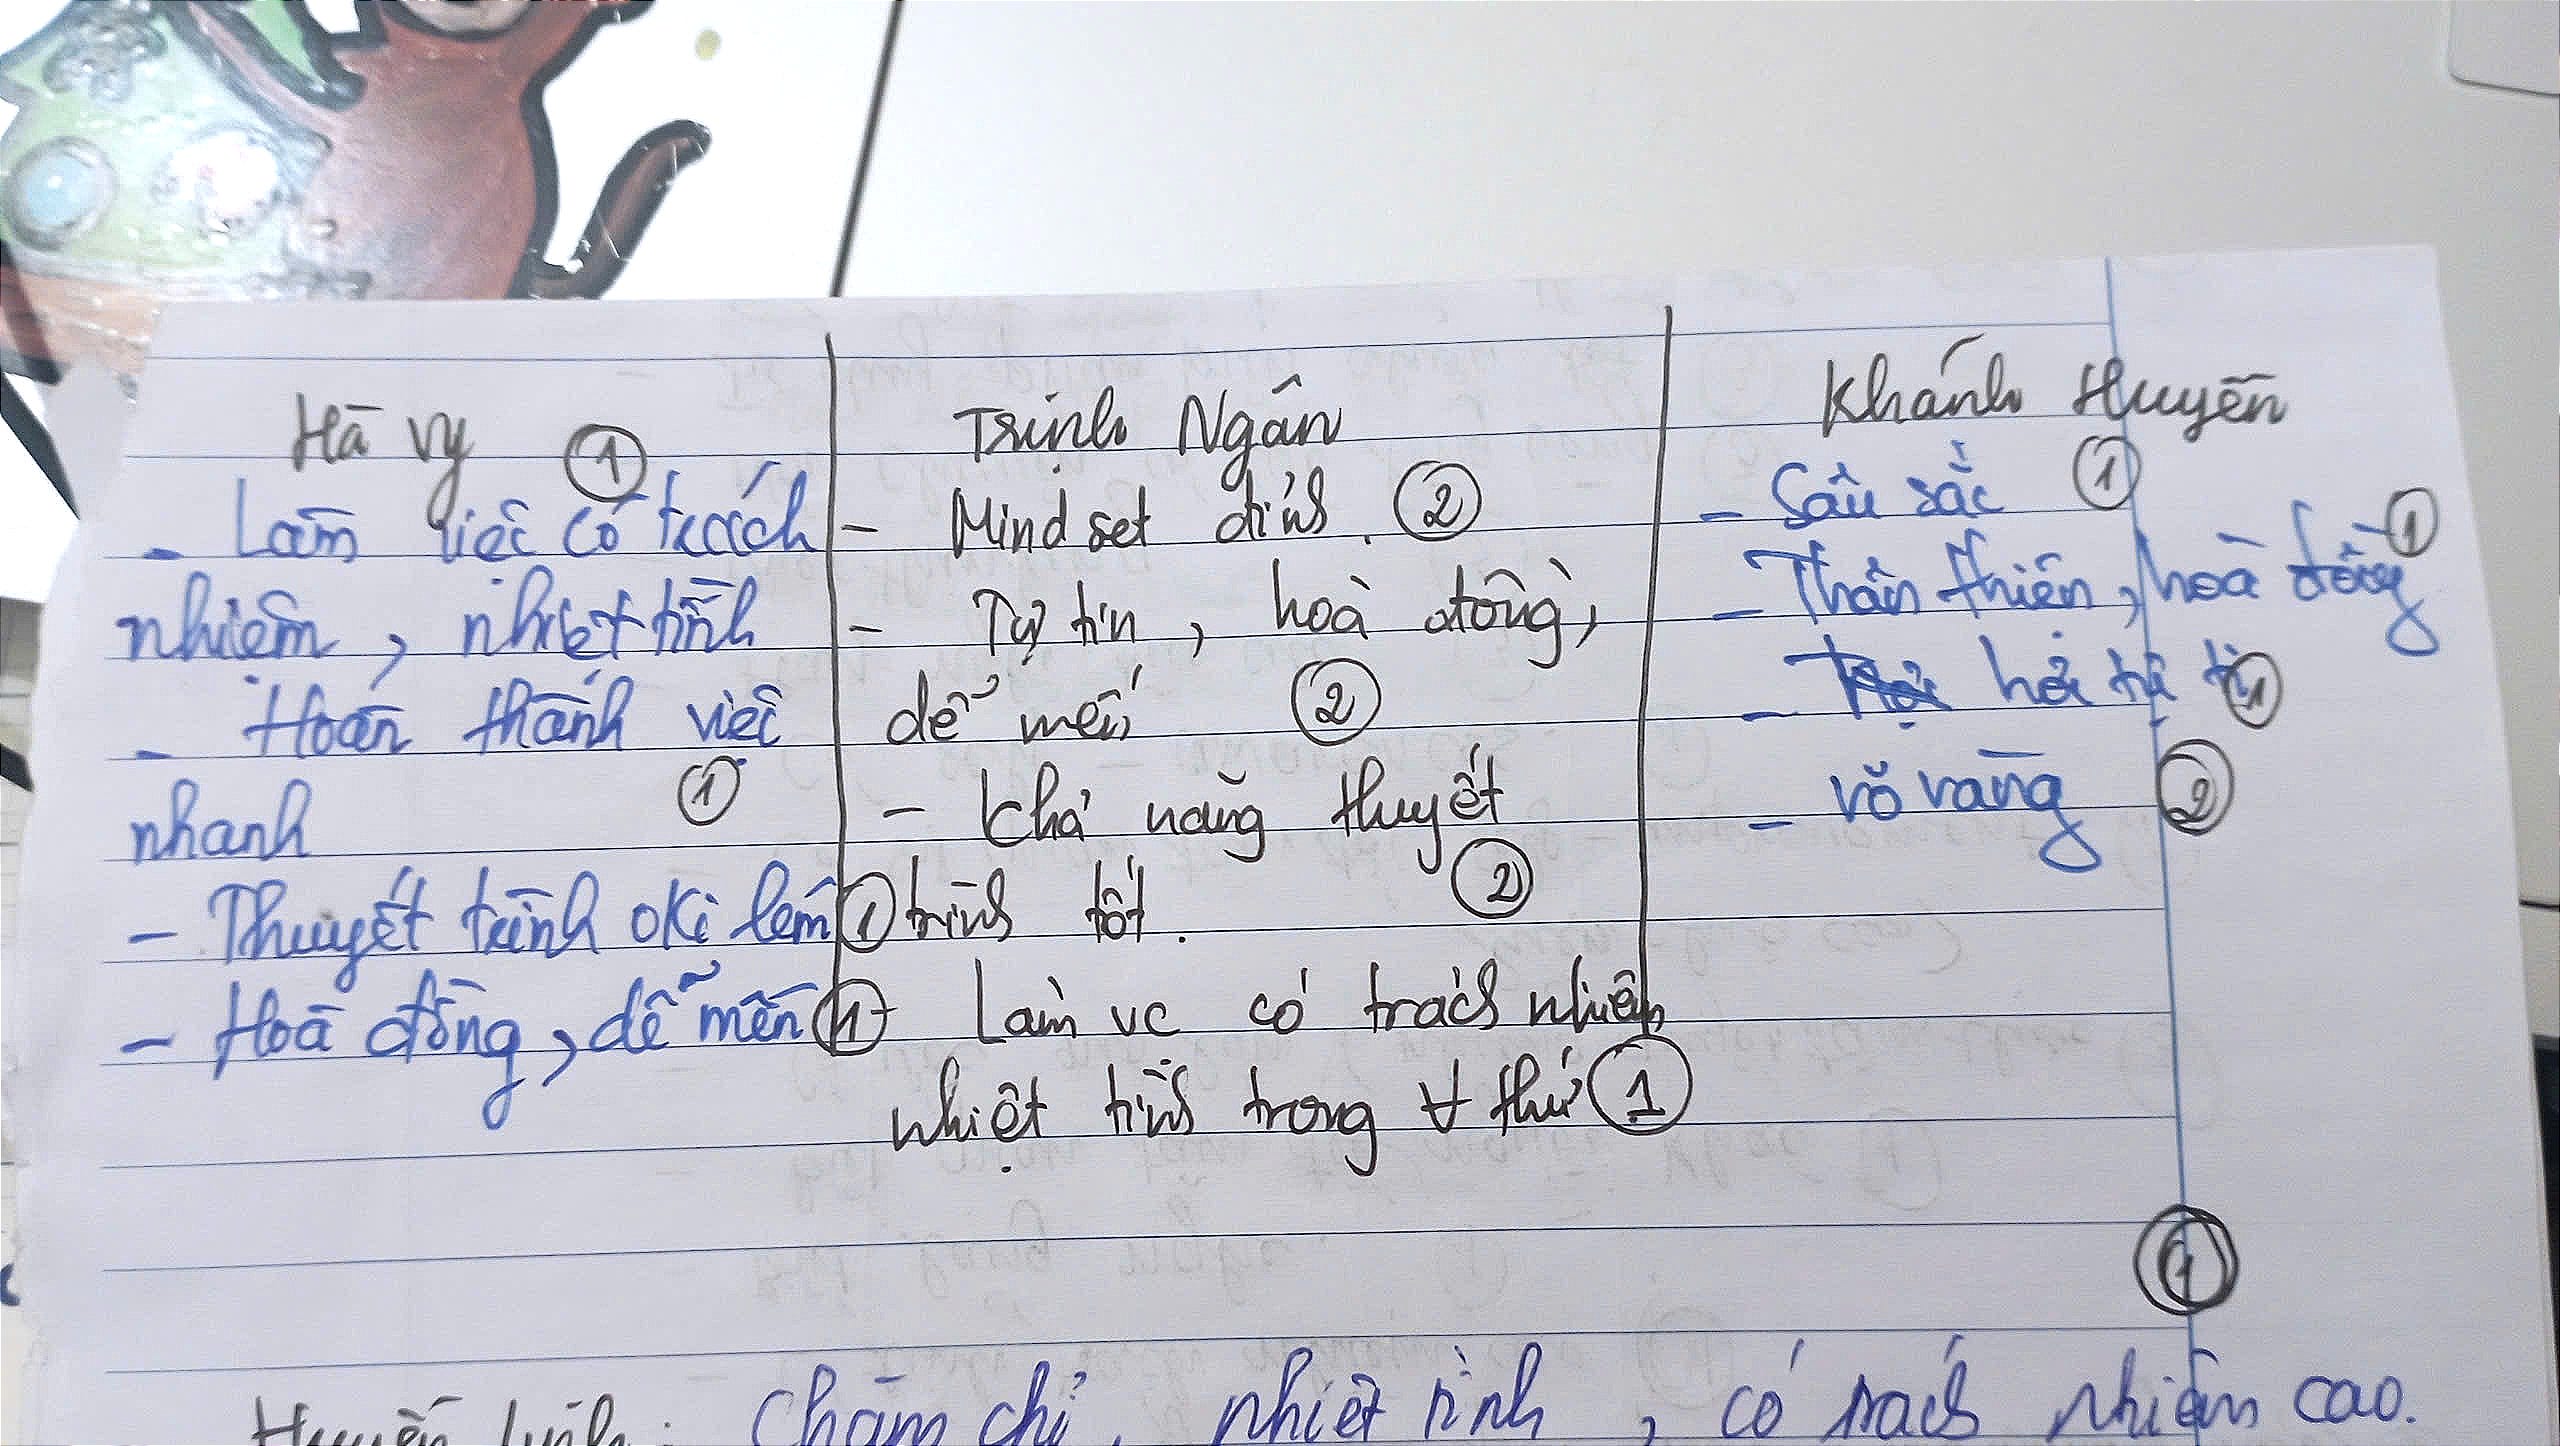 Hà Vy ①
- Làm việc có trách
nhiệm, nhiệt tình
- Hoàn thành việc
nhanh ①
- Thuyết trình oki lém ①
- Hoà đồng, dễ mến ①
Trinh Ngân
- Mindset đỉnh. ②
- Tự tin, hoà đồng,
dễ mến ②
- Khả năng thuyết
trình tốt. ②
- Làm vc có trách nhiệm
nhiệt tình trong ∀ thứ ①
Khánh Huyền
- Sâu sắc ①
- Thân thiện, hoà đồng ①
- hơi tự ti ①
- vỡ vàng ②
①
Huyền Linh: Chăm chỉ, nhiệt tình, có trách nhiệm cao.